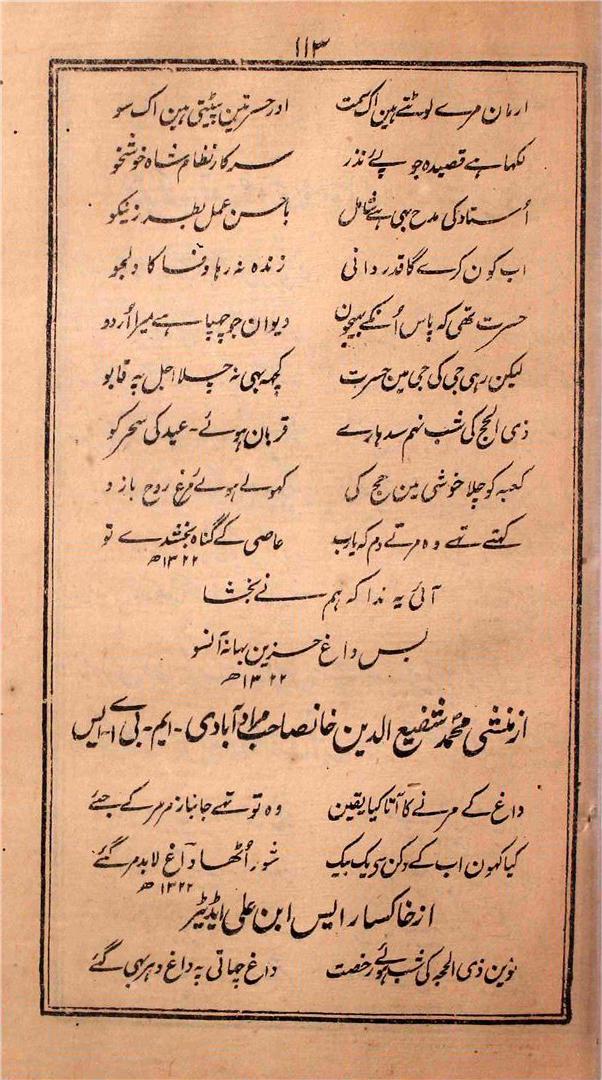 ۱۱۳
ارمان مرے لوٹتے ہین اک سمت اور حسرتین پیٹتی ہین اک سو
لکھا ہے قصیدہ جو پئے نذر سرکار نظام شاہ خوشخو
اُستاد کی مدح بھی ہے شامل باحسن عمل بطرز نیکو
اب کون کرے گا قدردانی زندہ نہ رہا وفا کا دلجو
حسرت تھی کہ پاس اُنکے بھیجون دیوان جو چھپا ہے میرا اُردو
لیکن رہی جی کی جی مین حسرت کچھ بھی نہ چلا اجل پہ قابو
ذی الحج کی شب نہم سدہارے قربان ہوئے۔ عید کی سحر کو
کعبہ کو چلا خوشی مین حج کی کھولے ہوئے مرغ روح بازو
کہتے تھے وہ مرتے دم کہ یارب عاصی کے گناہ بخشدے تو
۱۳۲۲ھ
آئی یہ ندا کہ ہم نے بخشا
بس داغ حزین بہانہ آنسو
۱۳۲۲ھ
از منشی محمد شفیع الدین خانصاحب مرادآبادی۔ ایم۔ بی۔ اے۔ ایس
داغ کے مرنے کا آتا کیا یقین وہ تو تھے جانباز مر مر کے جئے
کیا کہون اب کے دکن سی یک بیک شور اُٹھا داغ لابد مر گئے
۱۳۲۲ھ
از خاکسار ایس ابن علی ایڈیٹر
نوین ذی الحجہ کی شب ہوئے رخصت داغ چھاتی پہ داغ دھر بھی گئے